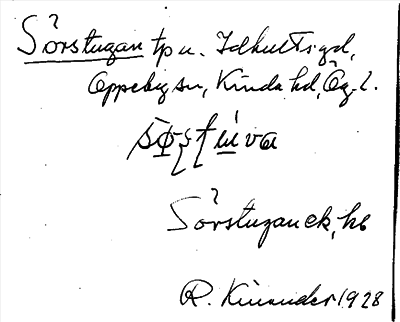 Sörstugan tp u. Idhults gd,
Oppeby sn, Kinda hd, Ög. l.
Sörstugan ek, hs
R. Kinander 1928